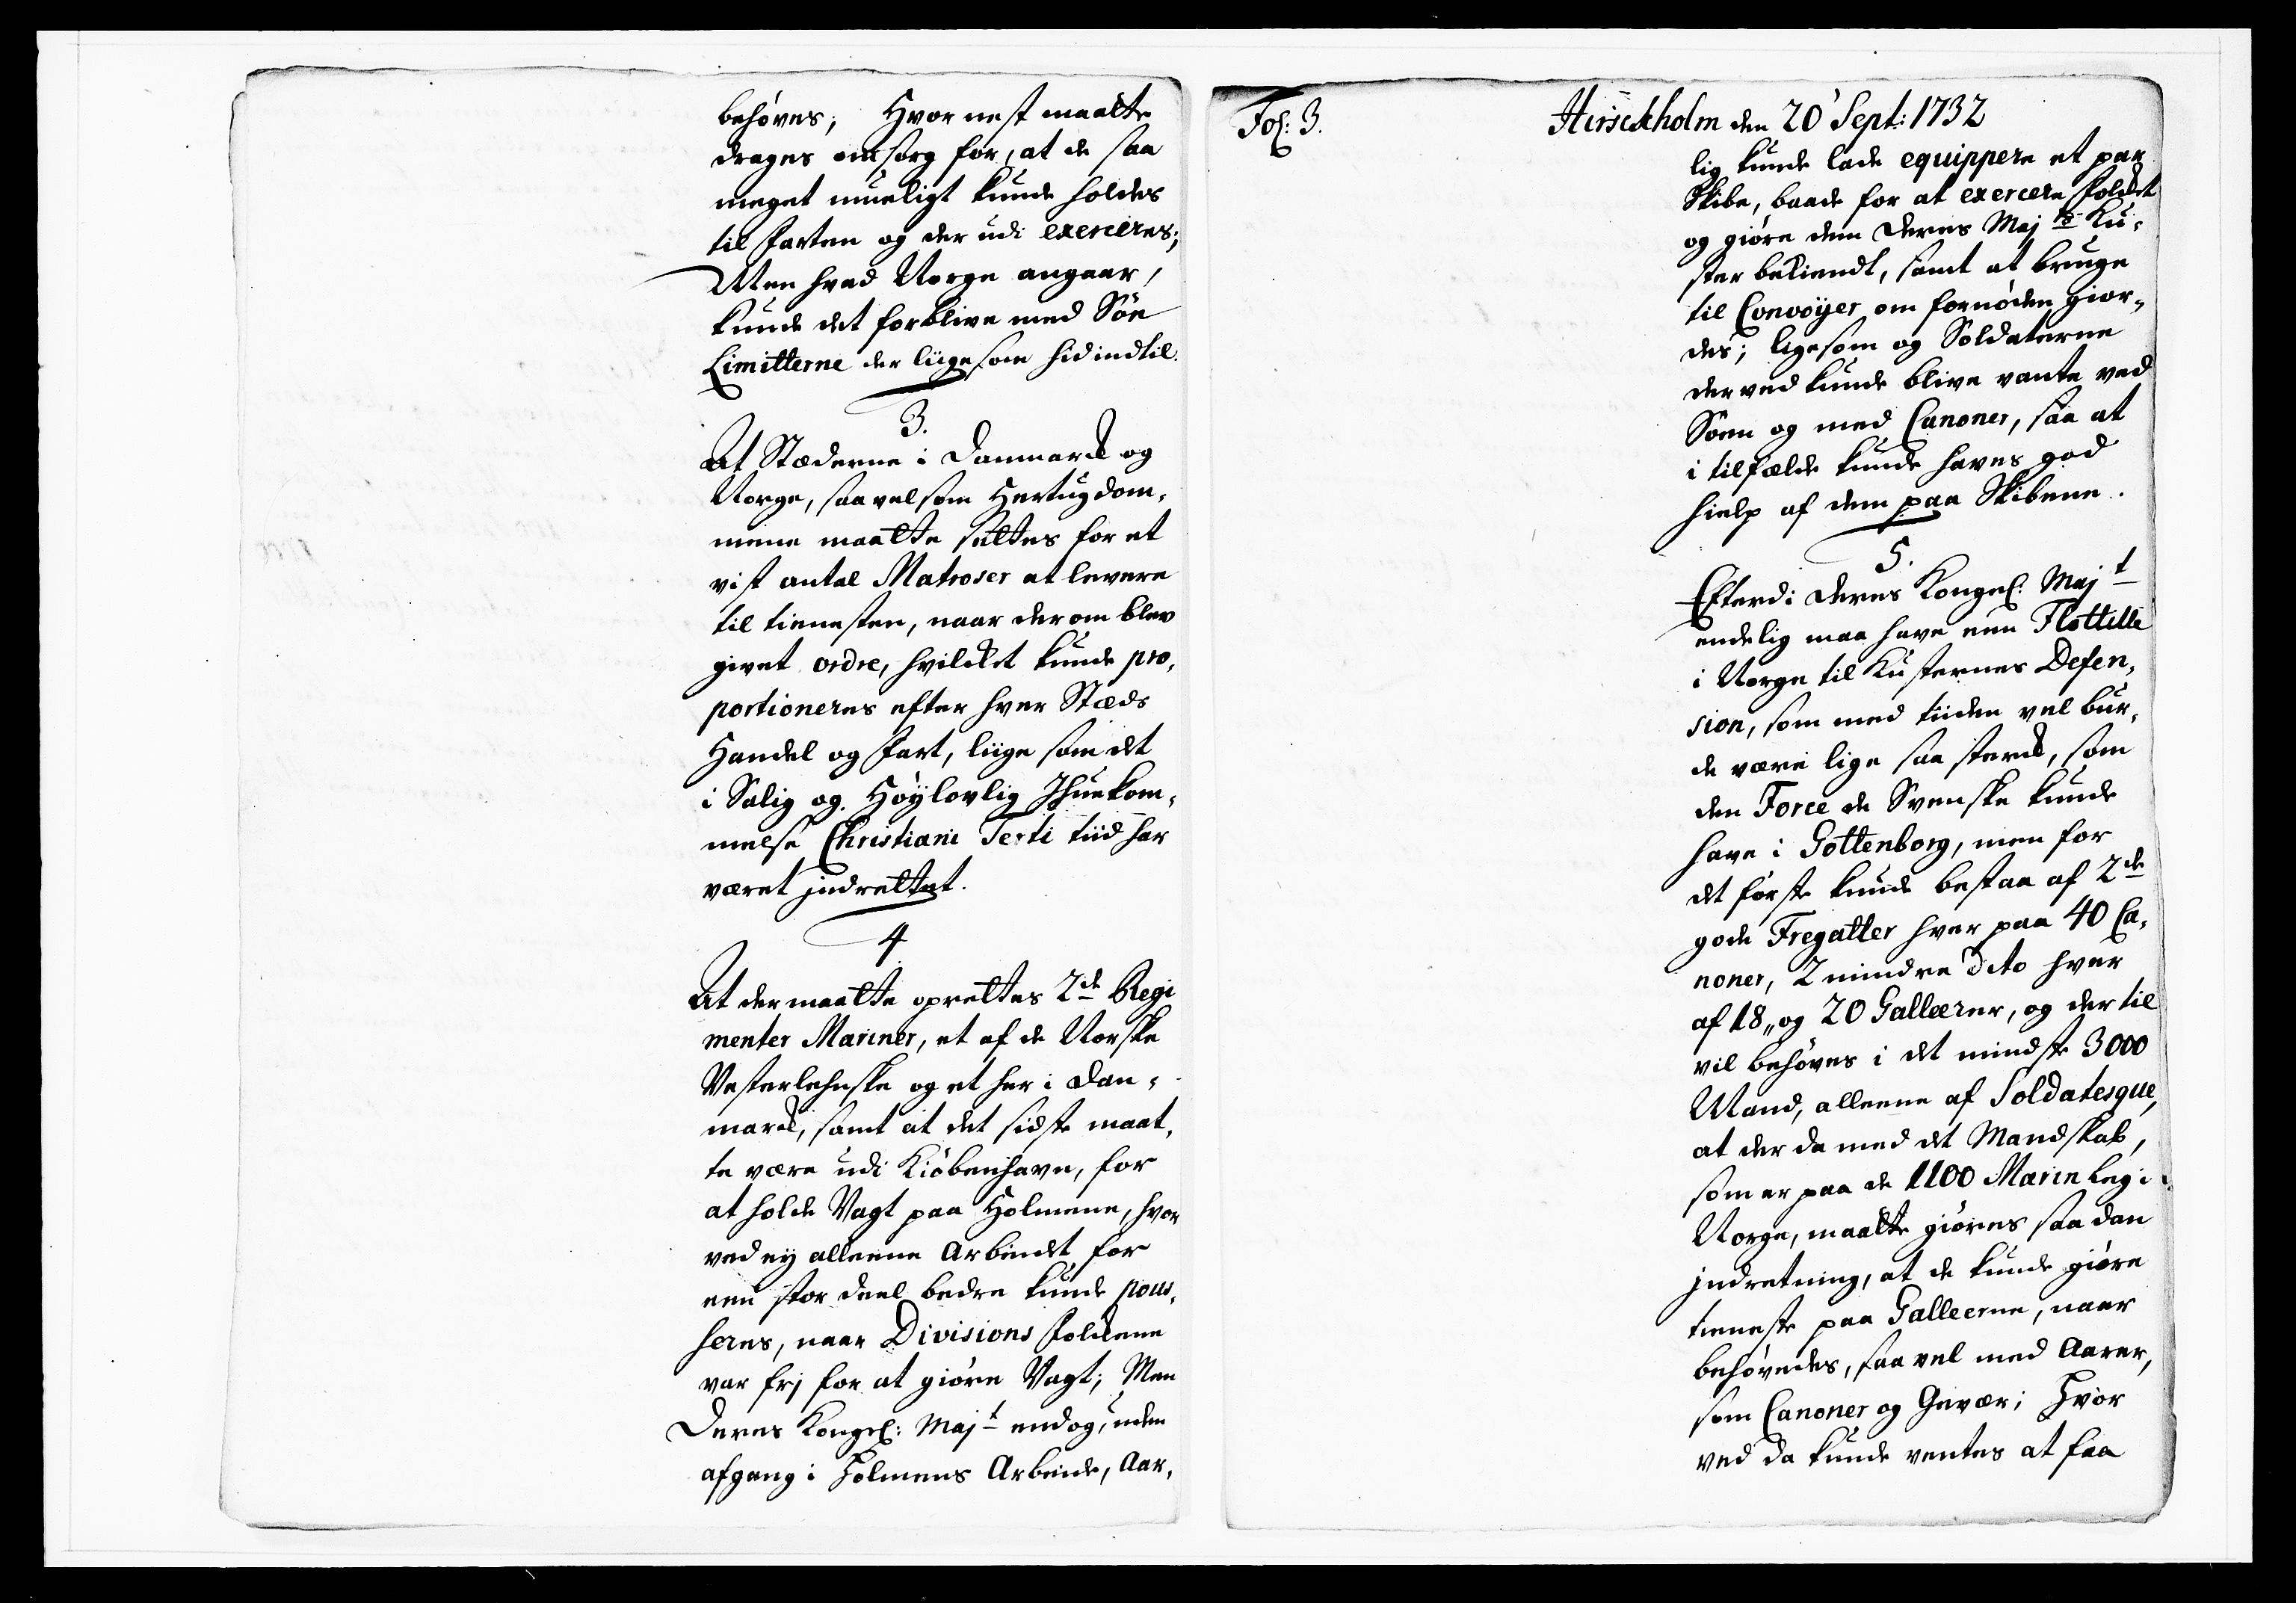 behøves, Hvor nest maatte
drages omsorg for, at de saa
meget mueligt kunde holdes
til Farten og der udi exerceres;
Men hvad Norge angaar,
kunde det forblive med Søe
Limitterne der liigesom hidindtil.
3.
At Stæderne i Danmarck og
Norge, saavelsom Hertugdom,
mene maatte sættes for et
vist antal Matroser at levere
til tienesten, naar derom blev
givet ordre, hvilcket kunde pro,
portioneres efter hver Stæds
Handel og Fart, liige som det
i Salig og Høylovlig Ihuekom,
melse Christiani Terti tiid har
været jndrettet.
4
At der maatte oprettes 2de Regi
menter Mariner, et af de Norske
Vesterlehnske og et her i Dan,
marck, samt at det sidste maat,
te være udi Kiøbenhavn, for
at holde Vagt paa Holmene, hvor
ved ej alleene Arbeidet for
een stor deel bedre kunde pous,
seres, naar Divisions Folckene
var frj for at giøre Vagt; Men
Deres Kongel: Majt endog, uden
afgang i Holmens Arbeide, Aar,
Fol: 3.
Hirsckholm den 20 Sept: 1732
lig kunde lade equippere et par
Skibe, baade for at exercere Folcket
og giøre dem Deres Majts Ku,
ster bekiendt, samt at bruge
til Convoyer om fornøden gior,
des; ligesom og Soldaterne
derved kunde blive vante ved
Søen og med Canoner, saa at
i tilfælde kunde haves god
hielp af dem paa Skibene.
5.
Efterdi Deres Kongel: Majt
endelig maa have een Flottille
i Norge til Kusternes Defen,
sion, som med tiiden vel bur,
de være lige saa sterck, som
den Force de Svenske kunde
have i Gottenborg, men for
det første kunde bestaa af 2de
gode Fregatter hver paa 40 Ca,
noner, 2 mindre dito hver
af 18,, og 20 Galleerer, og der til
vil behøves i det mindste 3000
Mand, alleene af Soldatesque,
at der da med det Mandskab,
som er paa de 1100 Marin Leg i
Norge, maatte giøres saadan
jndretning, at de kunde giøre
tieneste paa Galleerne, naar
behøvedes, saavel med Aarer,
som Canoner og Gevær; Hvor
ved da kunde ventes at faa